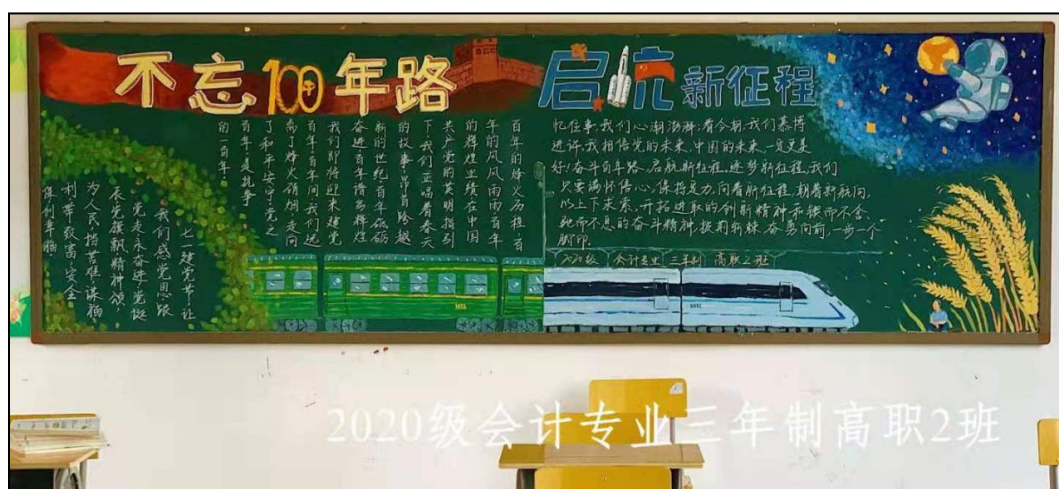 不忘100年路
启航新征程
百年的烽火历程百
年的风风雨雨百年
的辉煌业绩在中国
共产党的英明指引
下我们正唱着春天
的故事昂首跨越
新的世纪百年砥砺
奋进百年谱写辉煌
我们即将迎来建党
百年百年间我们远
离了烽火硝烟走向
了和平安宁党之
百年是抗争
的一百年
七一建党节让
我们感党恩跟
党走永奋进党徽
党旗飘精神颂
为人民谋福
利带致富
保创幸福
忆往事,我们心潮澎湃;看今朝,我们
我相信党的未来、中国的未来一定更
好!奋斗百年路,启航新征程,逐梦新征程,我们
只要满怀信心、保持定力,向着新征程,朝着新航向,
以上下求索、开拓进取的创新精神和锲而不舍、
驰而不息的奋斗精神,披荆斩棘、奋勇向前,一步一个
脚印。
2020级 会计专业 三年制 高职2班
2020级会计专业三年制高职2班